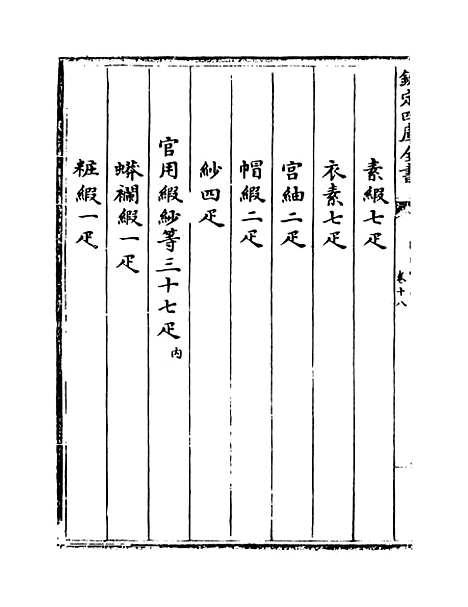 欽定四庫全書
卷十八
素緞七疋
衣素七疋
宫紬二疋
帽緞二疋
紗四疋
官用緞紗等三十七疋内
蟒襴緞一疋
粧緞一疋